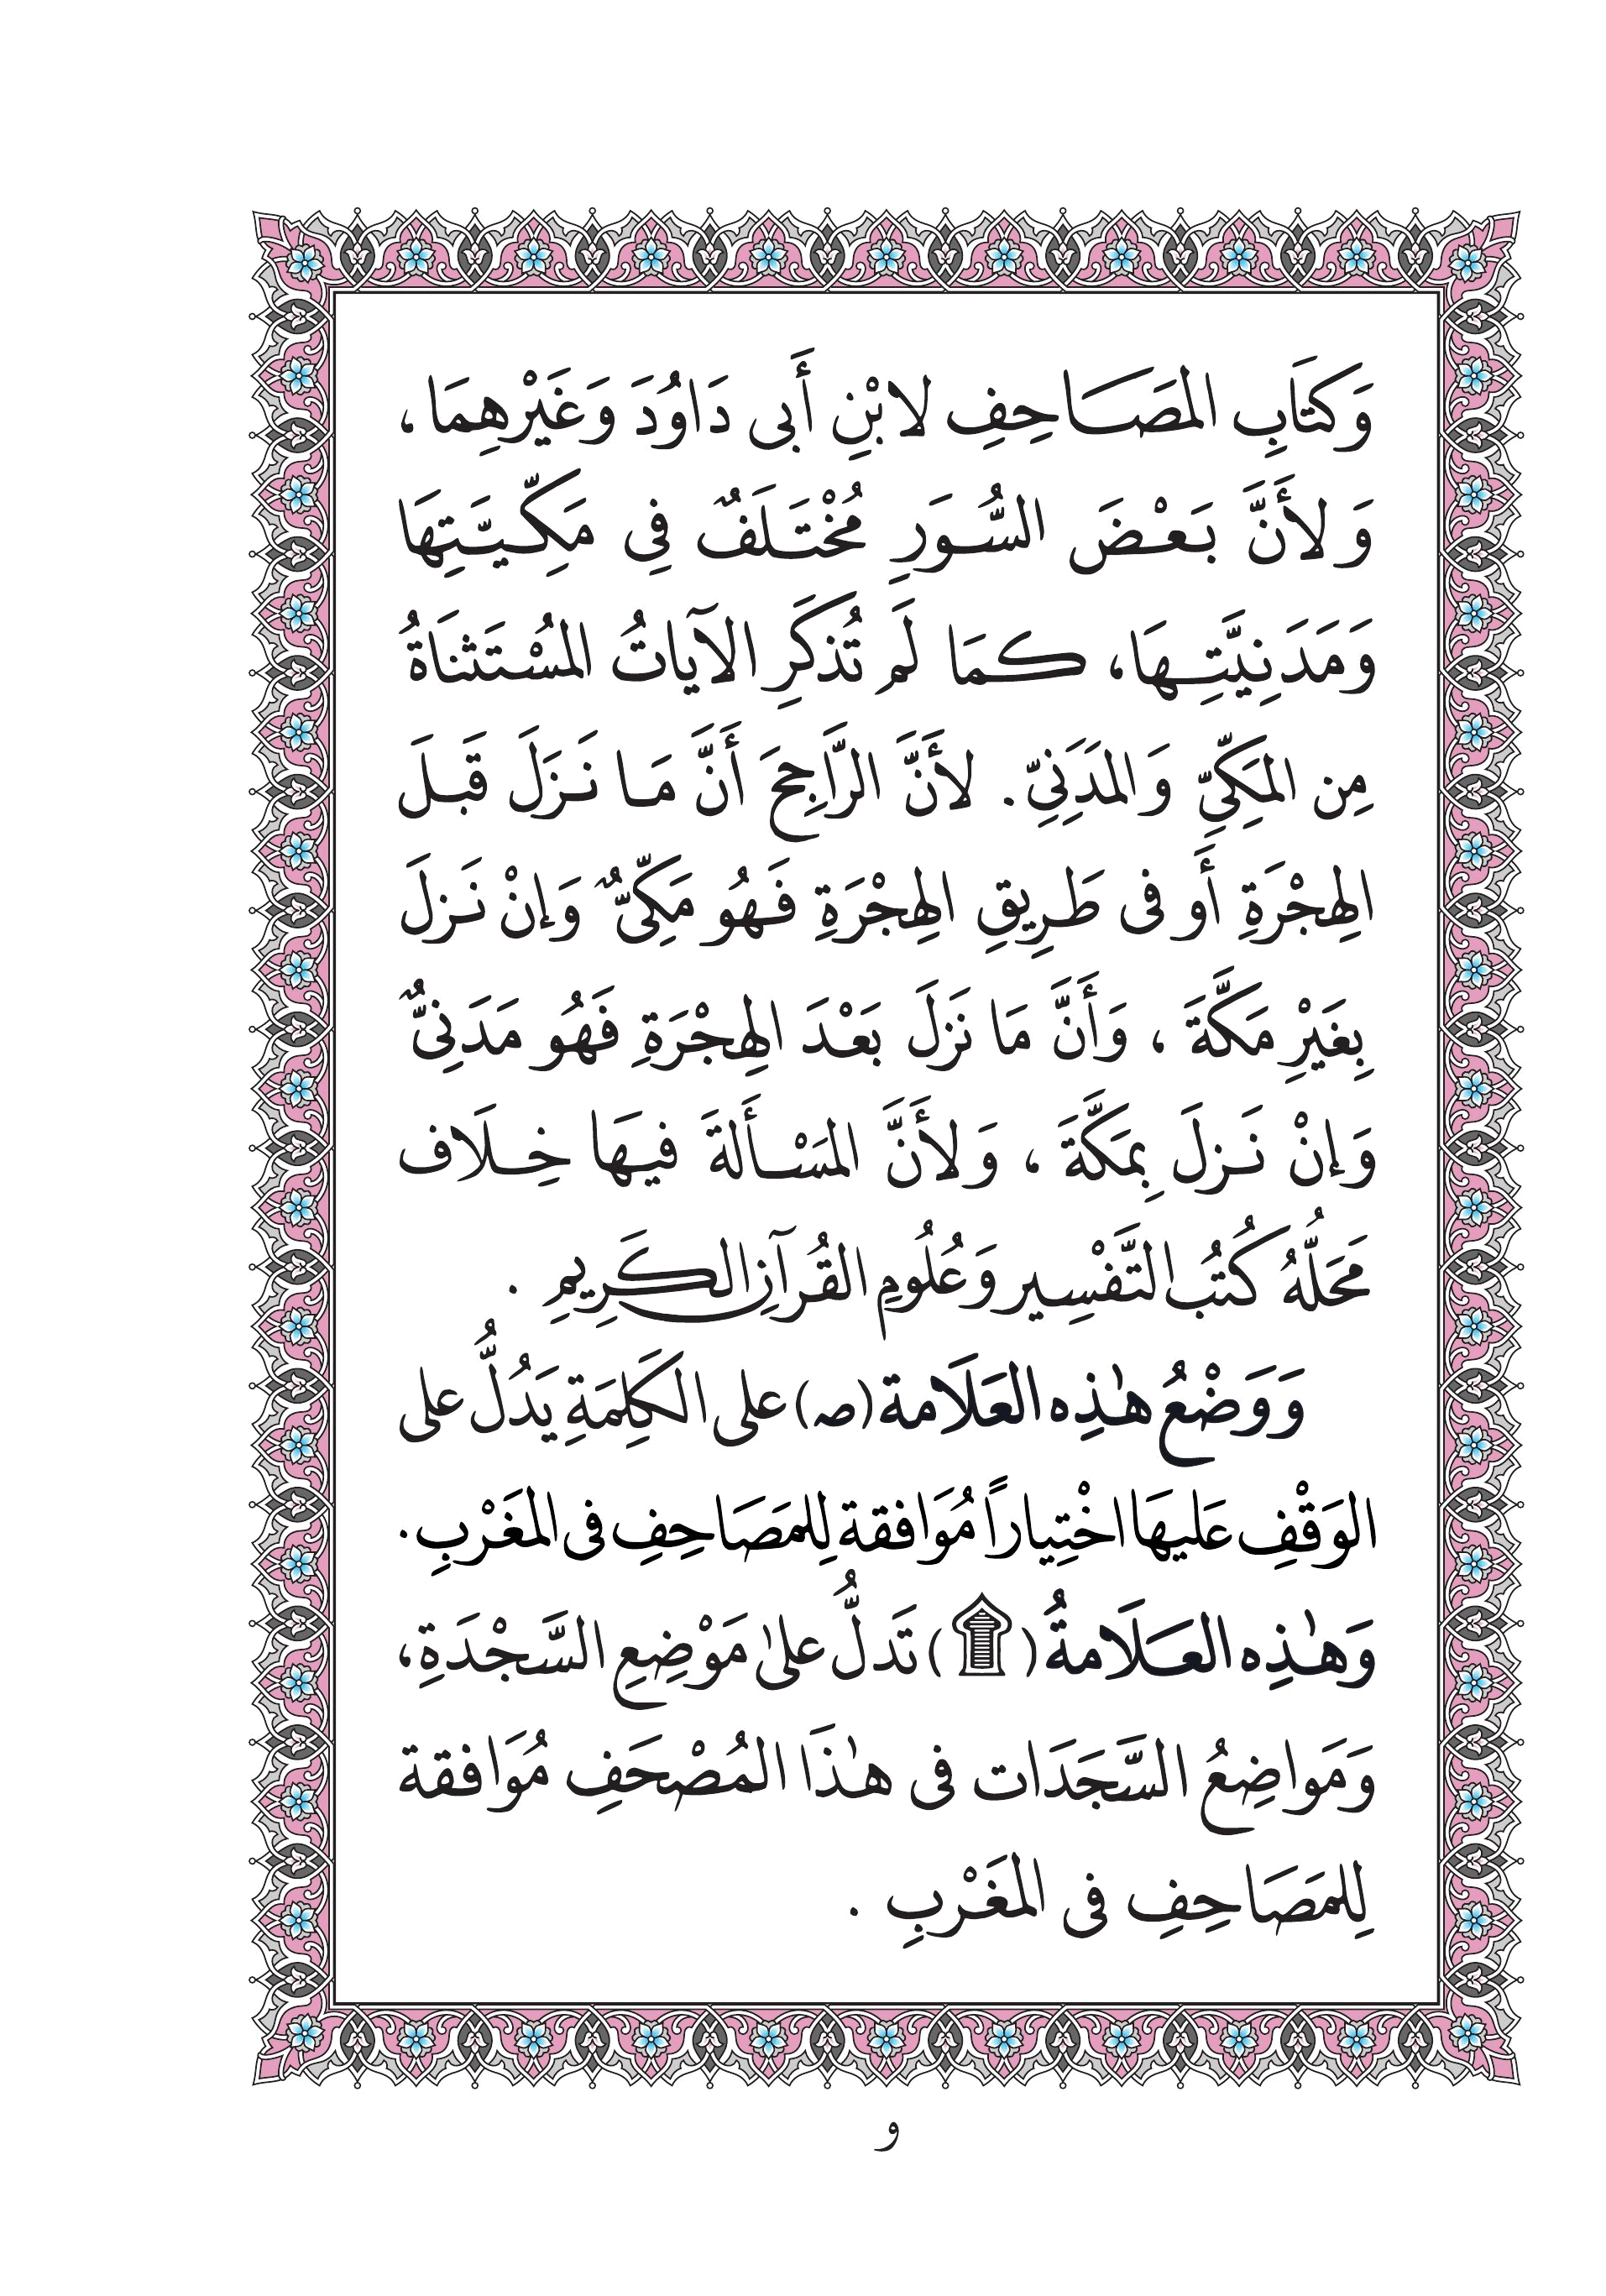 وَكتَابِ المصَاحِفِ لابْنِ أَبى دَاوُدَ وَغَيْرهِمَا ،
وَلأَنَّ بَعْضَ السُّوَرِ مُخْتَلَفٌ فِى مَكِّيَّتِهَا
وَمَدَنِيَّتِهَا، كمَا لَم تُذكَرِ الآيَاتُ المسْتَثنَاةُ
مِن المكِّىِّ وَالمدَنِىِّ . لأَنَّ الرَّاجِحَ أَنَّ مَا نَزَلَ قَبلَ
الهِجْرَةِ أَو فى طَرِيقِ الهِجْرَةِ فَهُو مَكِّىٌّ وَإنْ نَزلَ
بِغَيْرِ مَكَّةَ ، وَأَنَّ مَا نَزلَ بَعْدَ الهِجْرَةِ فَهُو مَدَنِىٌّ
وَإنْ نَزلَ بِمَكَّةَ ، وَلأَنَّ المسْأَلةَ فيهَا خِلَاف
مَحَلُّهُ كُتُب التَّفْسِير وَعُلُومِ القُرآنِ الكَرِيمِ .
وَوَضْعُ هٰذِه العَلَامة (صہ) على الكَلِمَةِ يَدُلُّ على
الوَقْفِ عَليهَا اخْتِياراً مُوَافقة لِلمصَاحِفِ فى المغَرْبِ.
وَهٰذِه العَلَامةُ (۩) تَدلُّ علىٰ مَوْضِعِ السَّجْدَةِ،
وَمَواضِعُ السَّجَدَات فى هٰذَا المُصْحَفِ مُوَافقة
لِلمصَاحِفِ فى المغَرْبِ .
و